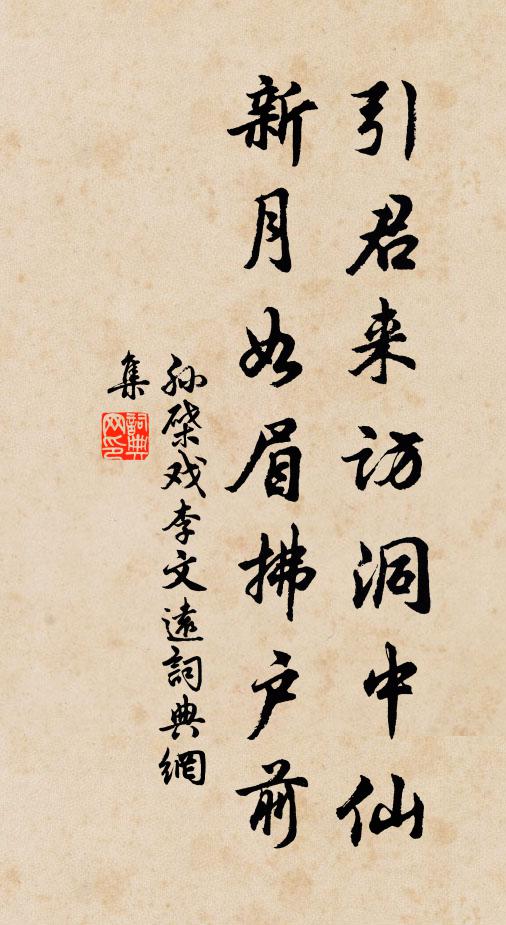 引君来访洞中仙
新月如眉拂户前
孙棨戏李文遠詞典網
集
詞典
网印